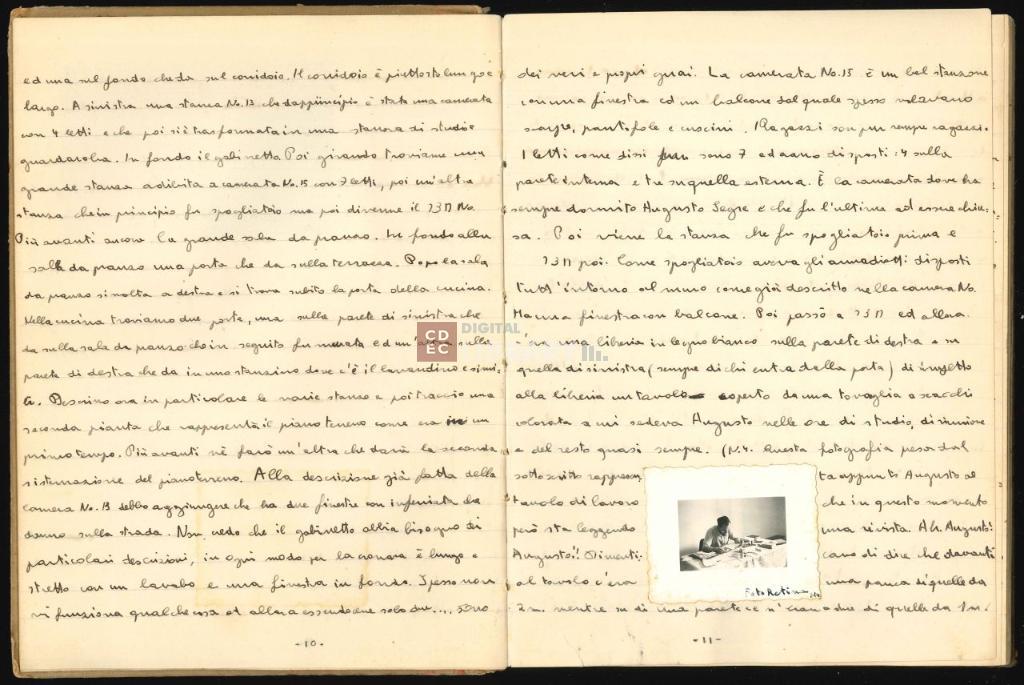 ed una sul fondo che dà sul corridoio. Il corridoio è piuttosto lungo e
largo. A sinistra una stanza No. 13 che dapprincipio è stata una camerata
con 4 letti e che poi si è trasformata in una stanza di studio e
guardaroba. In fondo il gabinetto Poi girando troviamo una
grande stanza adibita a camerata No. 15 con 7 letti, poi un'altra
stanza che in principio fu spogliatoio ma poi divenne il No.
Più avanti ancora la grande sala da pranzo. In fondo alla
sala da pranzo una porta che da sulla terrazza. Dopo la sala
da pranzo si volta a destra e si trova subito la porta della cucina.
Nella cucina troviamo due porte, una sulla parete di sinistra che
da sulla sala da pranzo che in seguito fu murata ed un'altra sulla
parete di destra che da in uno stanzino dove c'è il lavandino e simi-
li. Descrivo ora in particolare le varie stanze e poi traccio una
seconda pianta che rappresenta il piano terreno come era in un
primo tempo. Più avanti nè farò un'altra che darà la seconda
sistemazione del pianoterreno. Alla descrizione già fatta della
camera No. 13 debbo aggiungere che ha due finestre con inferriata che
danno sulla strada. Non credo che il gabinetto abbia bisogno di
particolari descrizioni, in ogni modo per la cronaca è lungo e
stretto con un lavabo e una finestra in fondo. Spesso non
vi funziona qualche cosa ed allora essendone solo due.... sono
-10-
dei veri e propri guai. La camerata No. 15 è un bel stanzone
con una finestra ed un balcone dal quale spesso volavano
scarpe, pantofole e cuscini. I Ragazzi son pur sempre ragazzi.
I letti come dissi sono 7 ed erano disposti: 4 sulla
parete interna e tre su quella esterna. È la camerata dove ha
sempre dormito Augusto Segre e che fu l'ultima ad essere chiu-
sa. Poi viene la stanza che fu spogliatoio prima e
poi. Come spogliatoio aveva gli armadietti disposti
tutt'intorno al muro come già descritto nella camera No.
Ha una finestra con balcone. Poi passò a ed allora
c'era una libreria in legno bianco sulla parete di destra e su
quella di sinistra (sempre di chi entra dalla porta) di rimpetto
alla libreria un tavolo coperto da una tovaglia a scacchi
colorata a cui sedeva Augusto nelle ore di studio, di riunione
e del resto quasi sempre. (N.4. Questa fotografia presa dal
sottoscritto rappresen ta appunto Augusto al
tavolo di lavoro che in questo momento
però sta leggendo una rivista. Ah Augusto!
Augusto!! Dimenti- cavo di dire che davanti
al tavolo c'era una panca di quelle da
2 m. mentre su di una parete ce n'erano due di quelle da 1 m.
Foto Retina
-11-
CDEC
DIGITAL